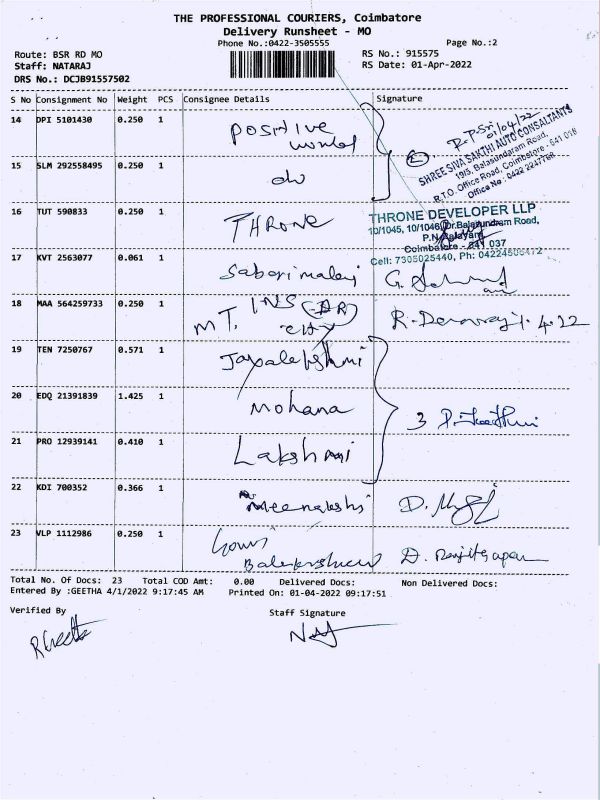 THE PROFESSIONAL COURIERS, Coimbatore
Delivery Runsheet - MO
Phone No.:0422-3505555
Page No.:2
Route: BSR RD MO
RS No.: 915575
Staff: NATARAJ
RS Date: 01-Apr-2022
DRS No.: DCJB91557502
S No Consignment No Weight PCS Consignee Details Signature
14 DPI 5101430 0.250 1 positive
01/04/22
SHREE SIVA SAKTHI AUTO CONSULTANTS
19/5, Balasundaram Road,
R.T.O. Office Road, Coimbatore - 641 018
Office No : 0422 2247768
15 SLM 292558495 0.250 1 do
16 TUT 590833 0.250 1 THRONE
THRONE DEVELOPER LLP
10/1045, 10/1046, Dr.Balasundram Road,
P.N.Palayam
Coimbatore - 641 037
Cell: 7305025440, Ph: 04224506472
17 KVT 2563077 0.061 1 Sabarimalai
18 MAA 564259733 0.250 1 MT. INS
19 TEN 7250767 0.571 1 Jayalakshmi
20 EDQ 21391839 1.425 1 Mohana
3
21 PRO 12939141 0.410 1 Lakshmi
22 KDI 700352 0.366 1 Meenakshi
23 VLP 1112986 0.250 1 Gowri
Total No. Of Docs: 23 Total COD Amt: 0.00 Delivered Docs: Non Delivered Docs:
Entered By :GEETHA 4/1/2022 9:17:45 AM Printed On: 01-04-2022 09:17:51
Verified By
Staff Signature